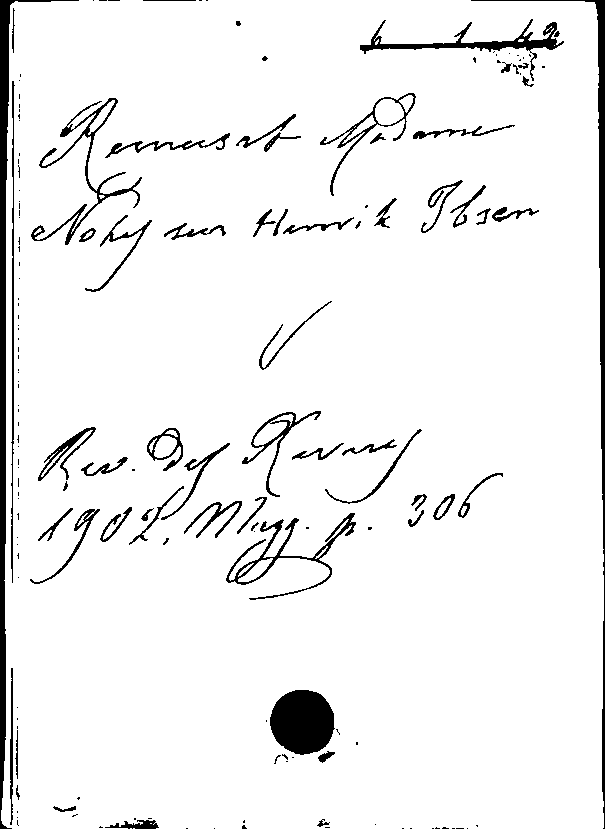 6 1 42
Remusat Madame
Notes sur Henrik Ibsen
V
Rev. des Revues
1902, Magg. p. 306